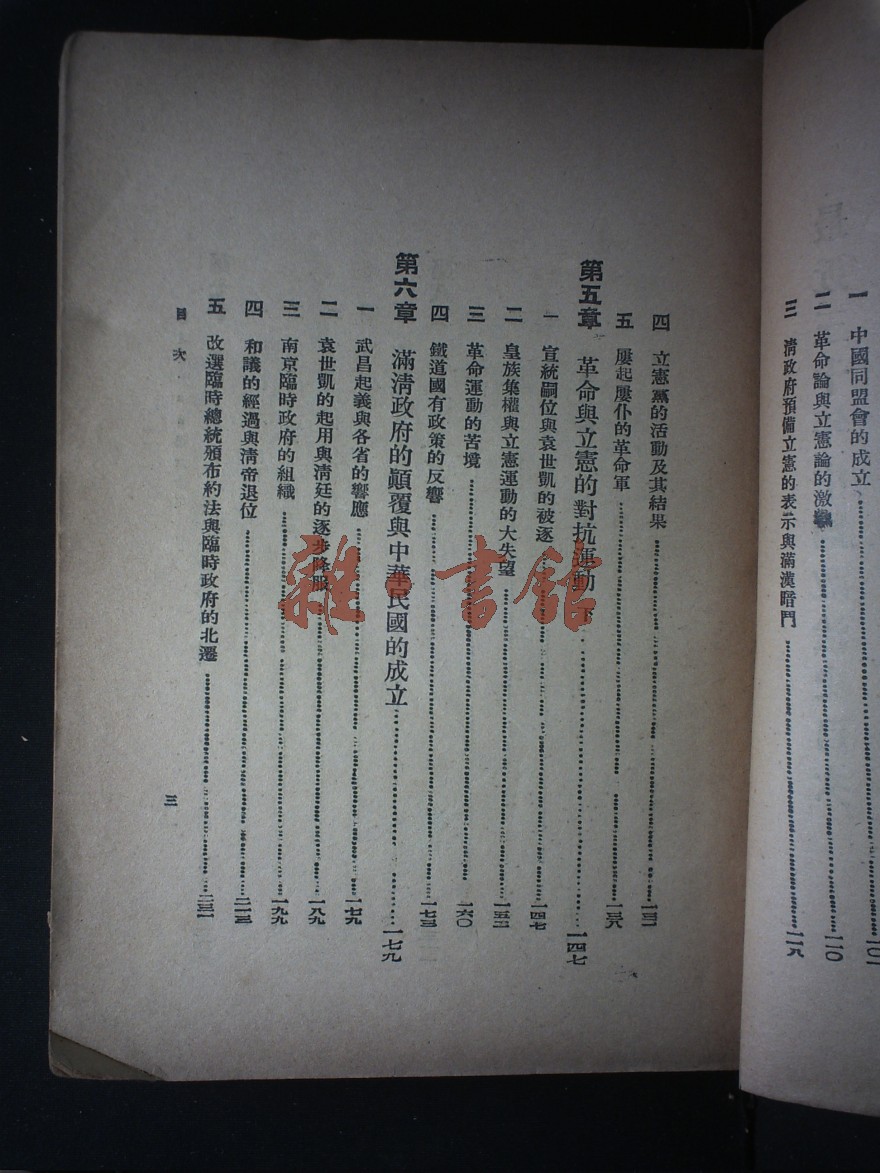 一 中國同盟會的成立……一〇一
二 革命論與立憲論的激……一一〇
三 清政府預備立憲的表示與滿漢暗鬥……一一八
四 立憲黨的活動及其結果……一三一
五 屢起屢仆的革命軍……一三八
第五章 革命與立憲的對抗運動 下……一四七
一 宣統嗣位與袁世凱的被逐……一四七
二 皇族集權與立憲運動的大失望……一五二
三 革命運動的苦境……一六〇
四 鐵道國有政策的反響……一七三
第六章 滿清政府的顛覆與中華民國的成立……一七九
一 武昌起義與各省的響應……一七九
二 袁世凱的起用與清廷的逐步降服……一八九
三 南京臨時政府的組織……一九九
四 和議的經過與清帝退位……二一三
五 改選臨時總統頒布約法與臨時政府的北遷……二三一
目次
三
雜·書館